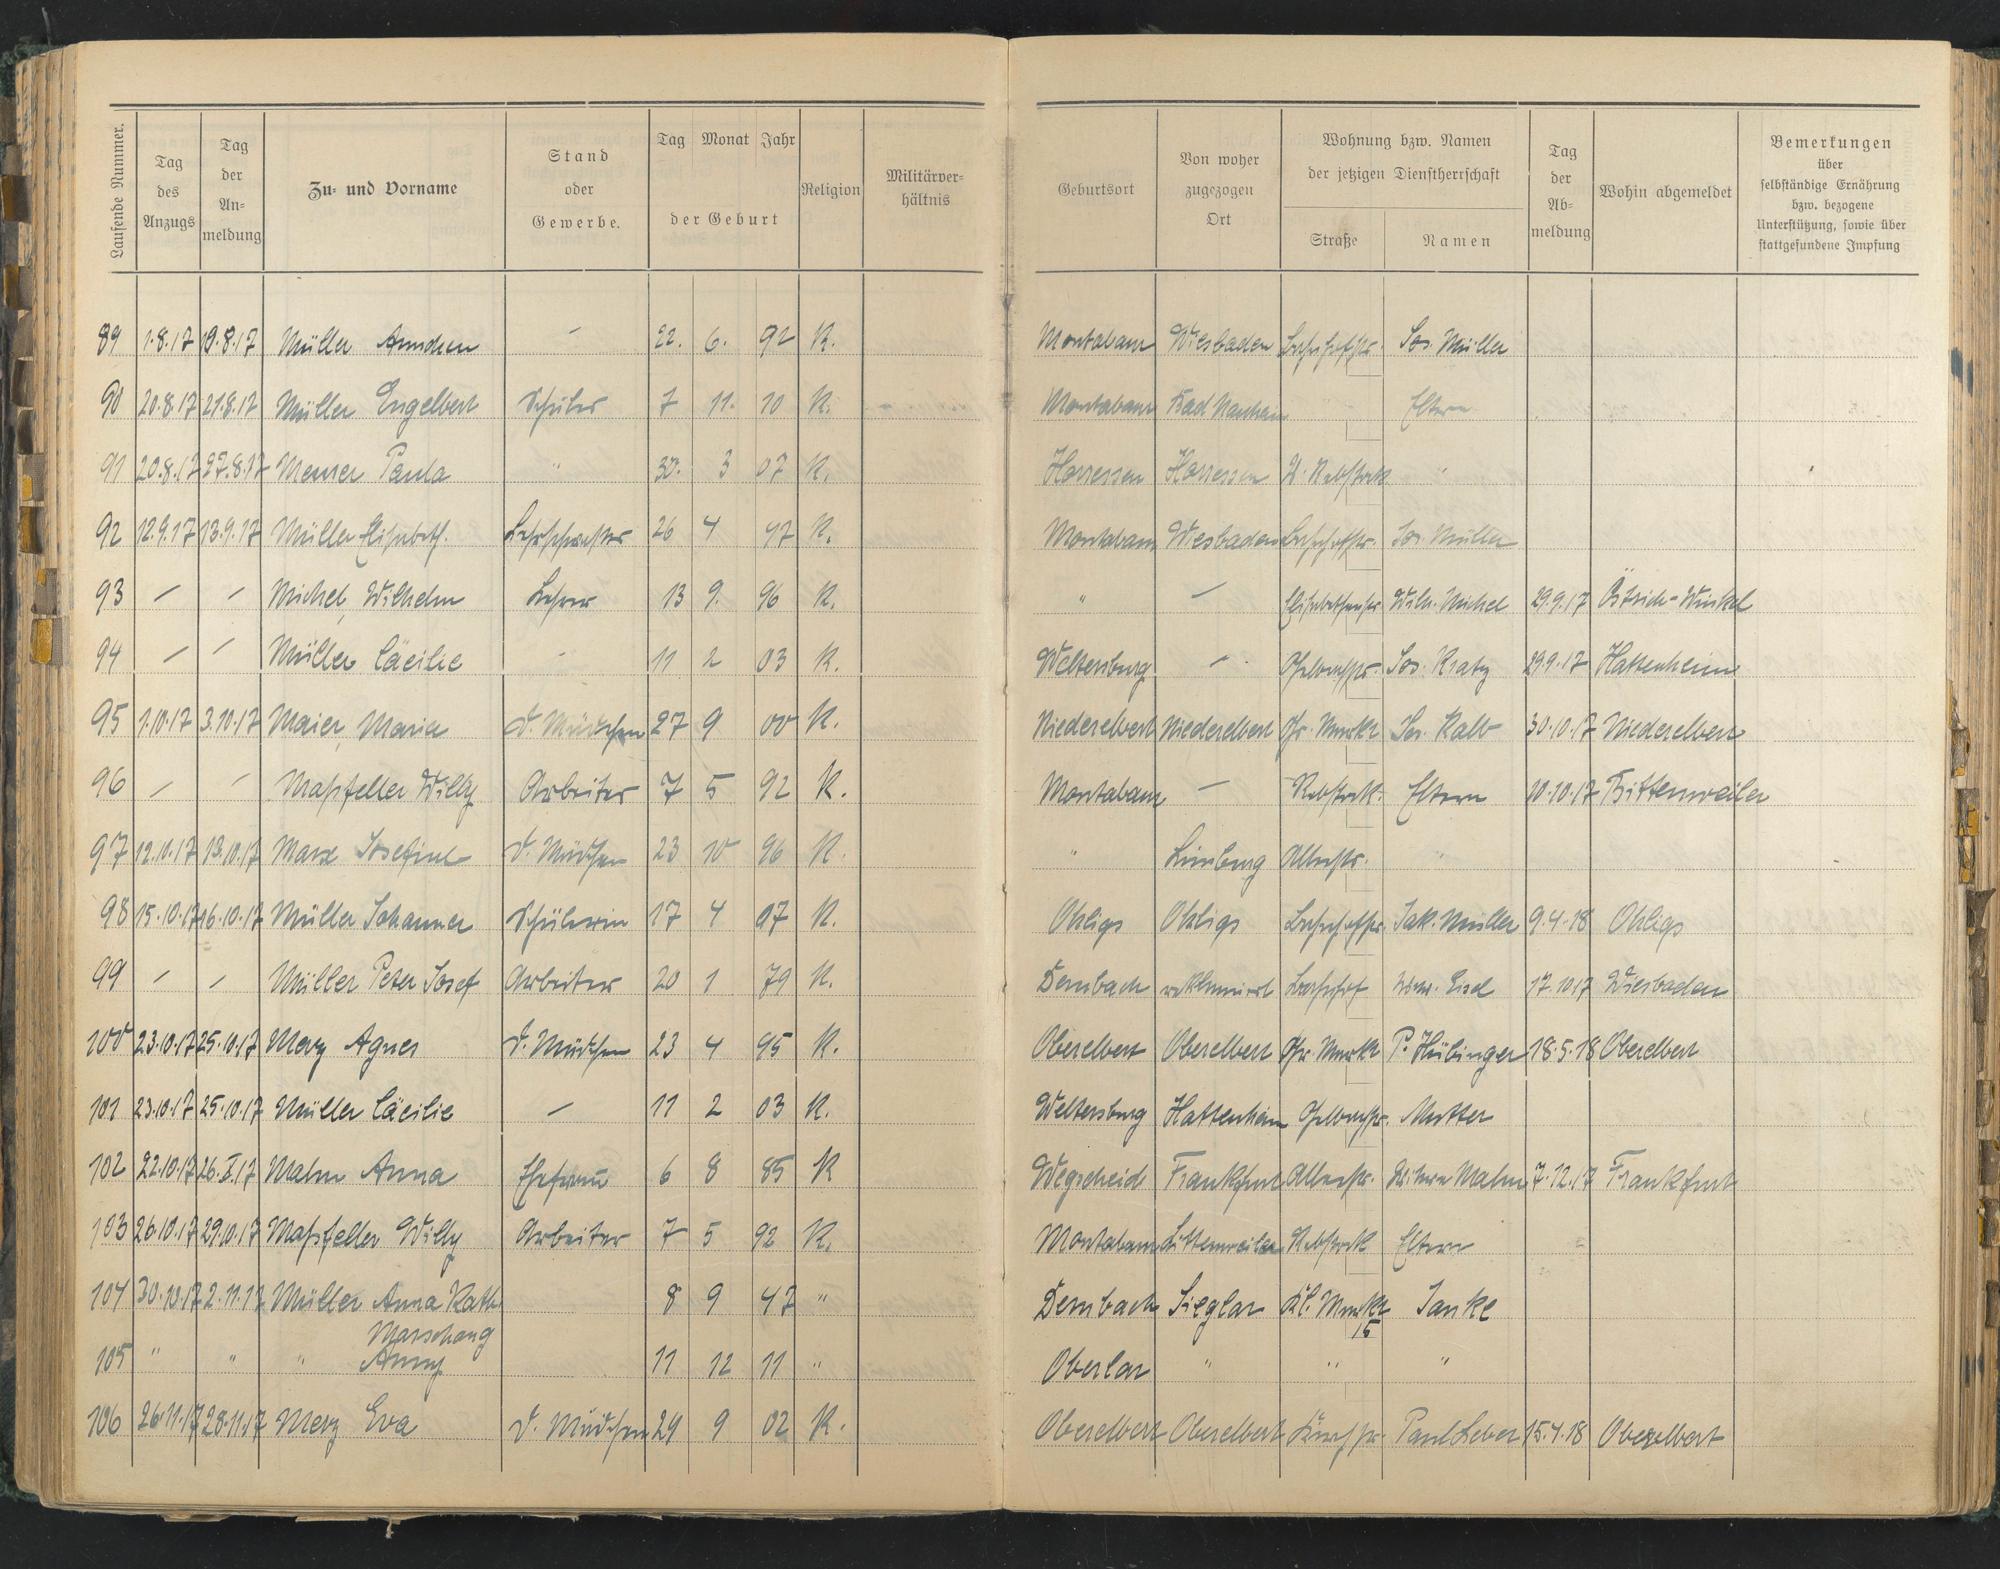 Laufende Nummer.
Tag des Anzugs
Tag der Anmeldung
Zu- und Vorname
Stand oder Gewerbe.
Tag Monat Jahr
der Geburt
Religion
Militärverhältnis
Geburtsort
Von woher zugezogen Ort
Wohnung bzw. Namen der jetzigen Dienstherrschaft
Straße
Namen
Tag der Abmeldung
Wohin abgemeldet
Bemerkungen über selbständige Ernährung bzw. bezogene Unterstützung, sowie über stattgefundene Impfung
89 1.8.17 19.8.17 Müller Ännchen – 22. 6. 92 K. Montabaur Wiesbaden Bahnhofstr. Jos. Müller
90 20.8.17 21.8.17 Müller Engelbert Schüler 7 11. 10 K. Montabaur Bad Nauheim Eltern
91 20.8.17 27.8.17 Meurer Paula " 30. 3 07 K. Horressen Horressen "
92 12.9.17 13.9.17 Müller Elisabeth. Lehrschwester 26 4 97 K. Montabaur Wiesbaden Bahnhofstr. Jos. Müller
93 – – Michel, Wilhelm Lehrer 13 9. 96 K. " – Elisabethenstr. Wilh. Michel 29.9.17 Östrich-Winkel
94 – – Müller Cäcilie – 11 2 03 K. Weltersburg – Gelbachstr. Jos. Kratz 29.9.17 Hattenheim
95 1.10.17 3.10.17 Maier, Maria D. Mädchen 27 9 00 K. Niederelbert Niederelbert Gr. Markt Jos. Kalb 30.10.17 Niederelbert
96 – – Maßfeller Willy Arbeiter 7 5 92 K. Montabaur – Rebstock. Eltern 10.10.17 Bittenweiler
97 12.10.17 13.10.17 Marx Josefine D. Mädchen 23 10 96 K. " Limburg Alleestr. "
98 15.10.17 16.10.17 Müller Johanna Schülerin 17 4 07 K. Ohligs Ohligs Bahnhofstr. Jak. Müller 9.4.18 Ohligs
99 – – Müller Peter Josef Arbeiter 20 1 79 K. Dernbach reklamiert Bahnhof Eisel 17.10.17 Wiesbaden
100 23.10.17 25.10.17 Merz Agnes D. Mädchen 23 4 95 K. Oberelbert Oberelbert Gr. Markt P. Hübinger 18.5.18 Oberelbert
101 23.10.17 25.10.17 Müller Cäcilie – 11 2 03 K. Weltersburg Hattenheim Gelbachstr. Mutter
102 22.10.17 26.X.17 Malm Anna Ehefrau 6 8 85 K Wegscheid Frankfurt Alleestr. Malm 7.12.17 Frankfurt
103 26.10.17 29.10.17 Maßfeller Willy Arbeiter 7 5 92 K. Montabaur Littenweiler Rebstock Eltern
104 30.10.17 2.11.17 Müller Anna Kath. 8 9 47 " Dernbach Sieglar Kl. Markt 15 Janke
105 " " " Marschang Anny 11 12 11 " Oberlar " " "
106 26.11.17 28.11.17 Merz Eva D. Mädchen 29 9 02 K. Oberelbert Oberelbert Kirchstr. Paul Leber 15.4.18 Oberelbert